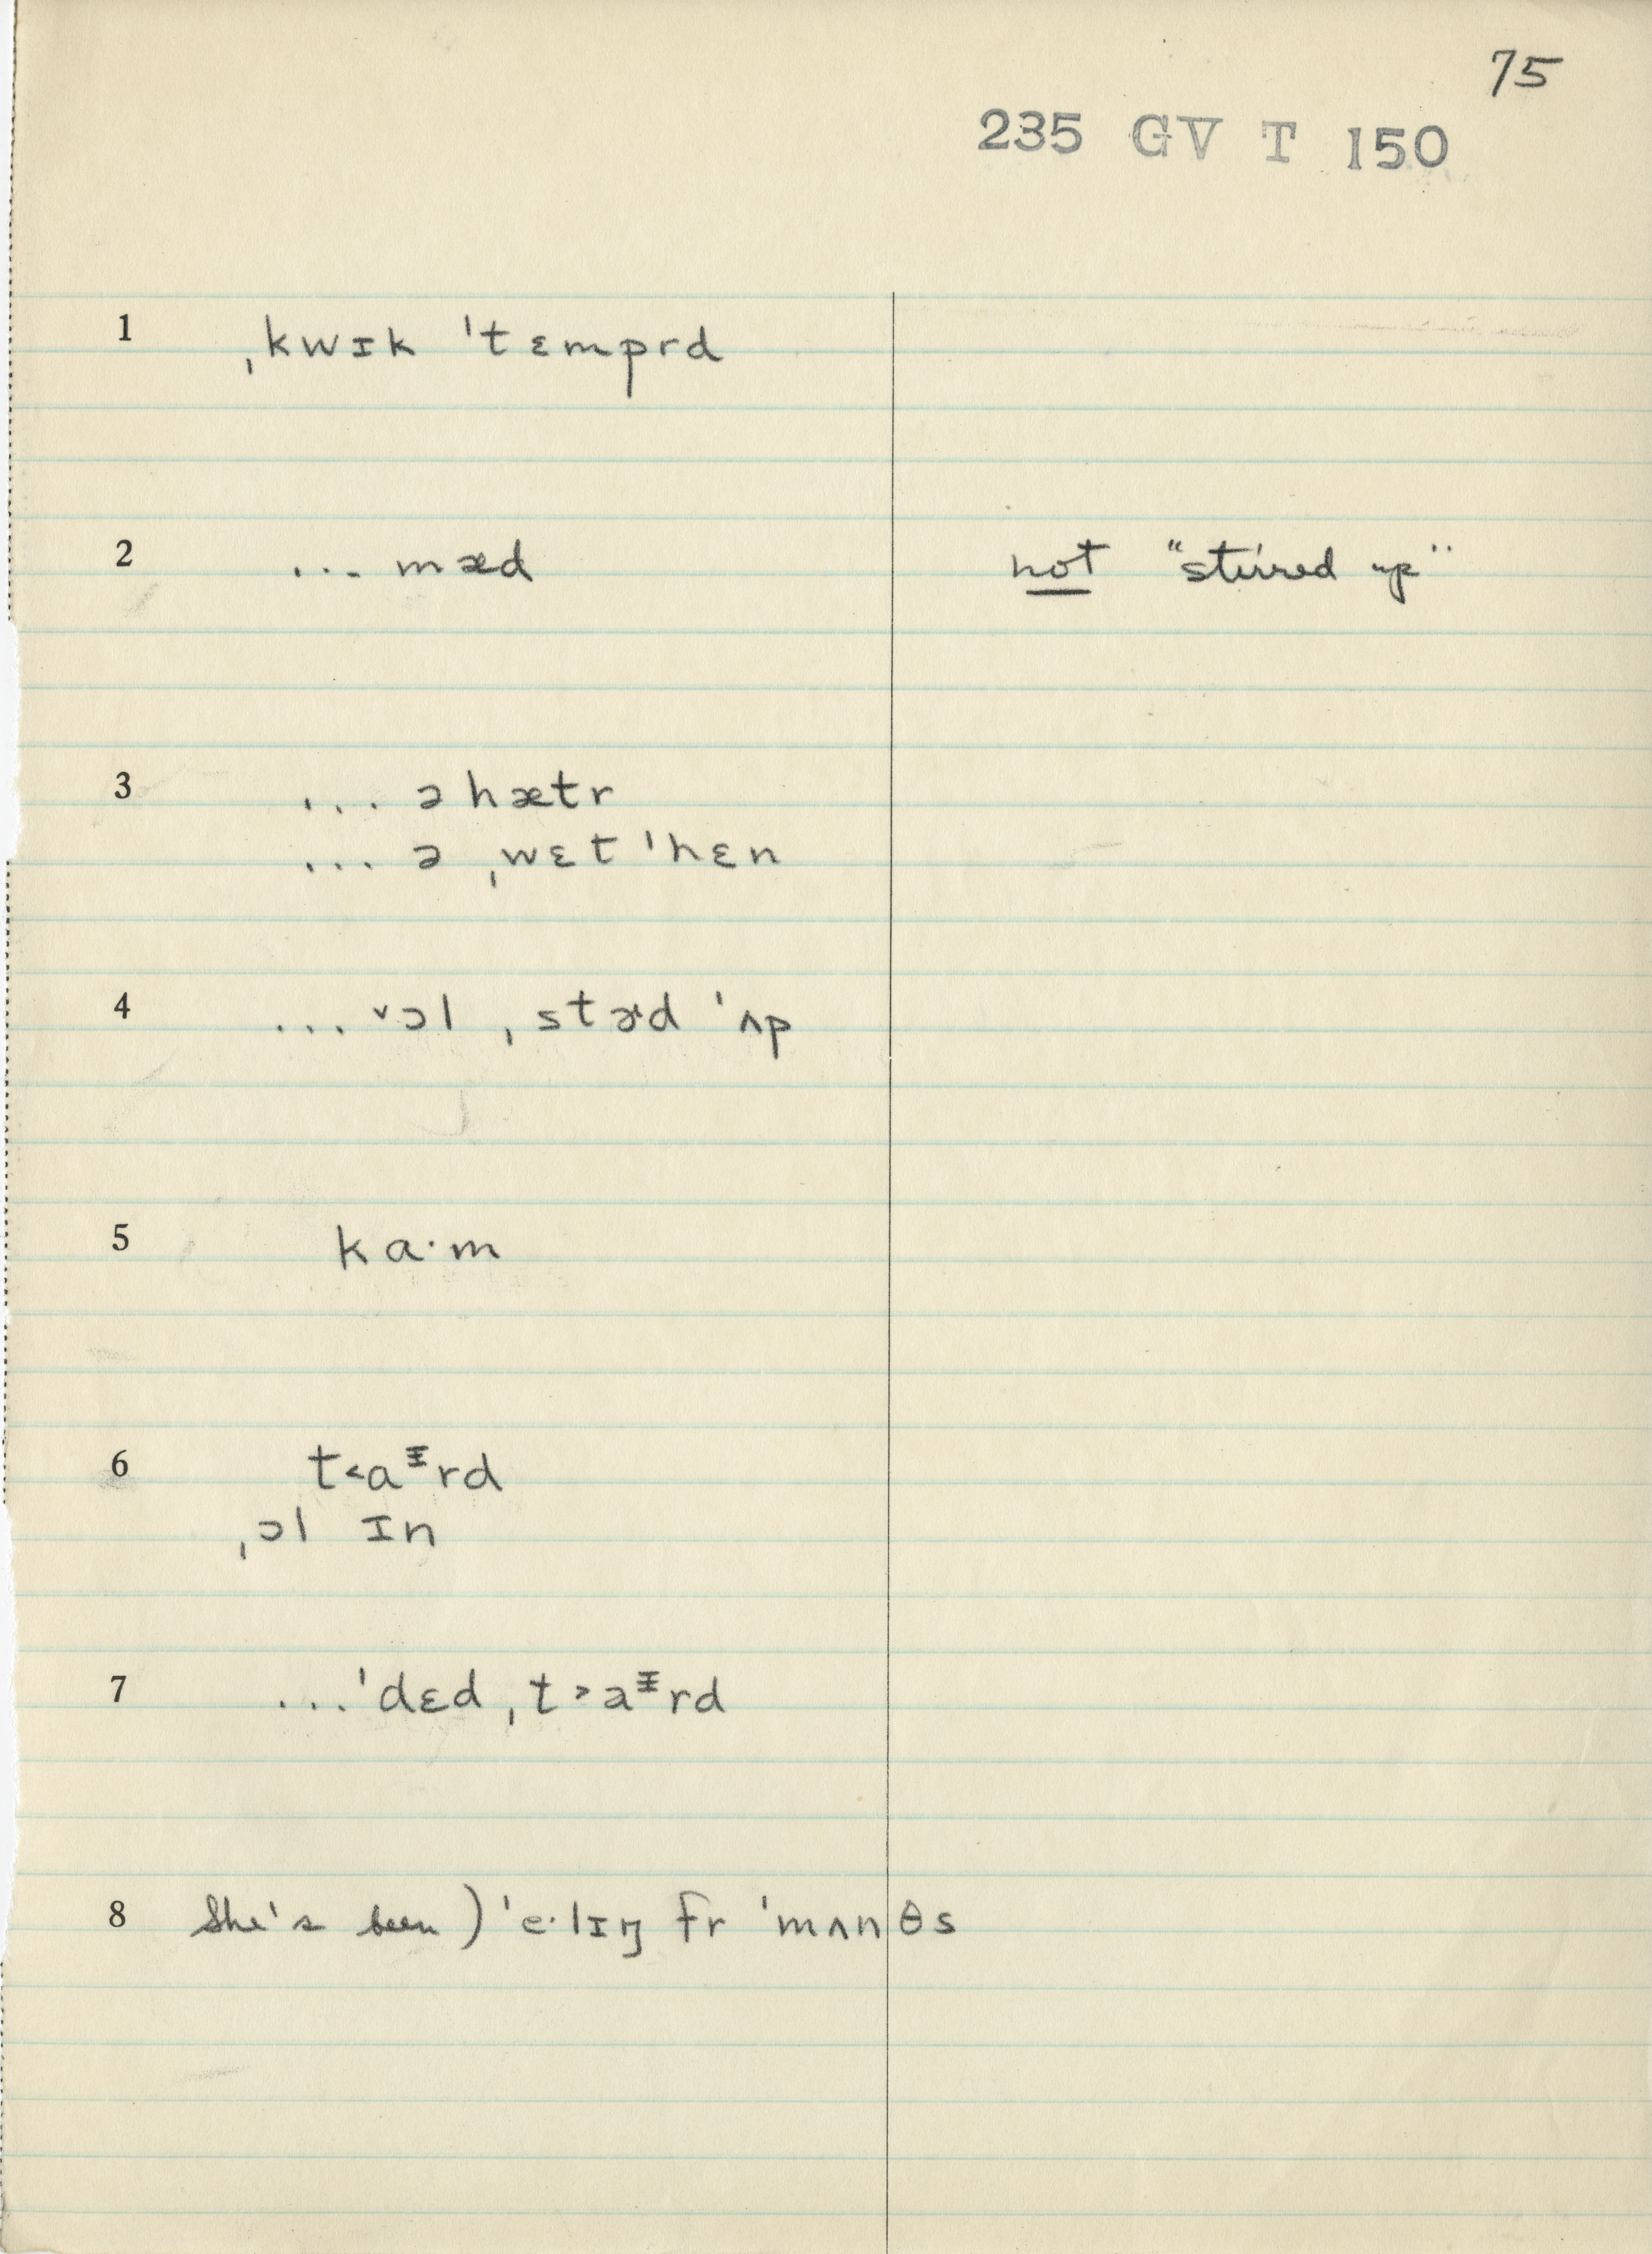 75
235 GV T 150
1 ˌkwɪk ˈtɛmprd
2 ... mæd not “stirred up”
3 ... ə hætr
... ə ˌwɛt ˈhɛn
4 ... ˅ɔl ˌstɚd ˈʌp
5 ka·m
6 t˂aᵻrd
ˌɔl ɪn
7 ... ˈdɛd ˌt˃aᵻrd
8 She's been) ˈe·lɪŋ fr ˈmʌnθs